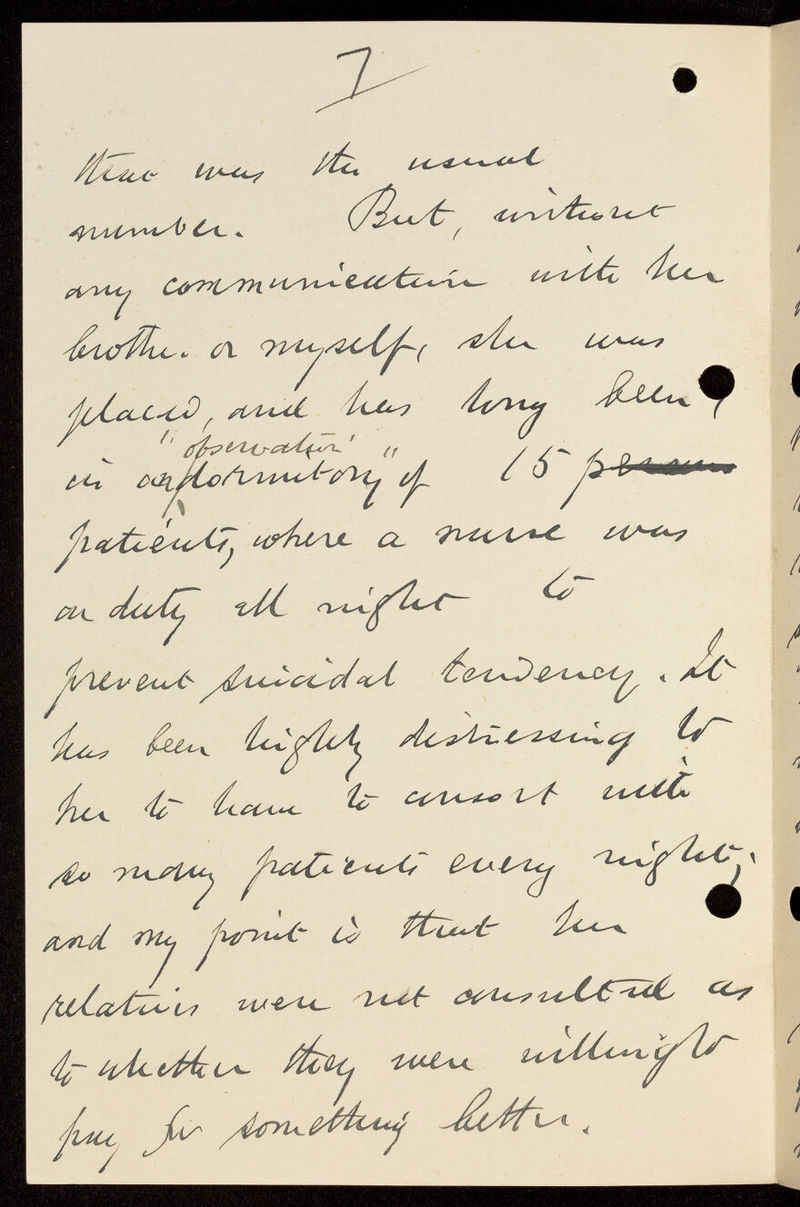 7
that was the usual
number. But, without
any communication with her
brother or myself, she was
placed, and has long been,
"observation"
in a dormitory" of 15 persons
patients, where a nurse was
on duty all night to
prevent suicidal tendency. It
has been highly distressing to
her to have to consort with
so many patients every night;
and my point is that her
relatives were not consulted as
to whether they were willing to
pay for something better.